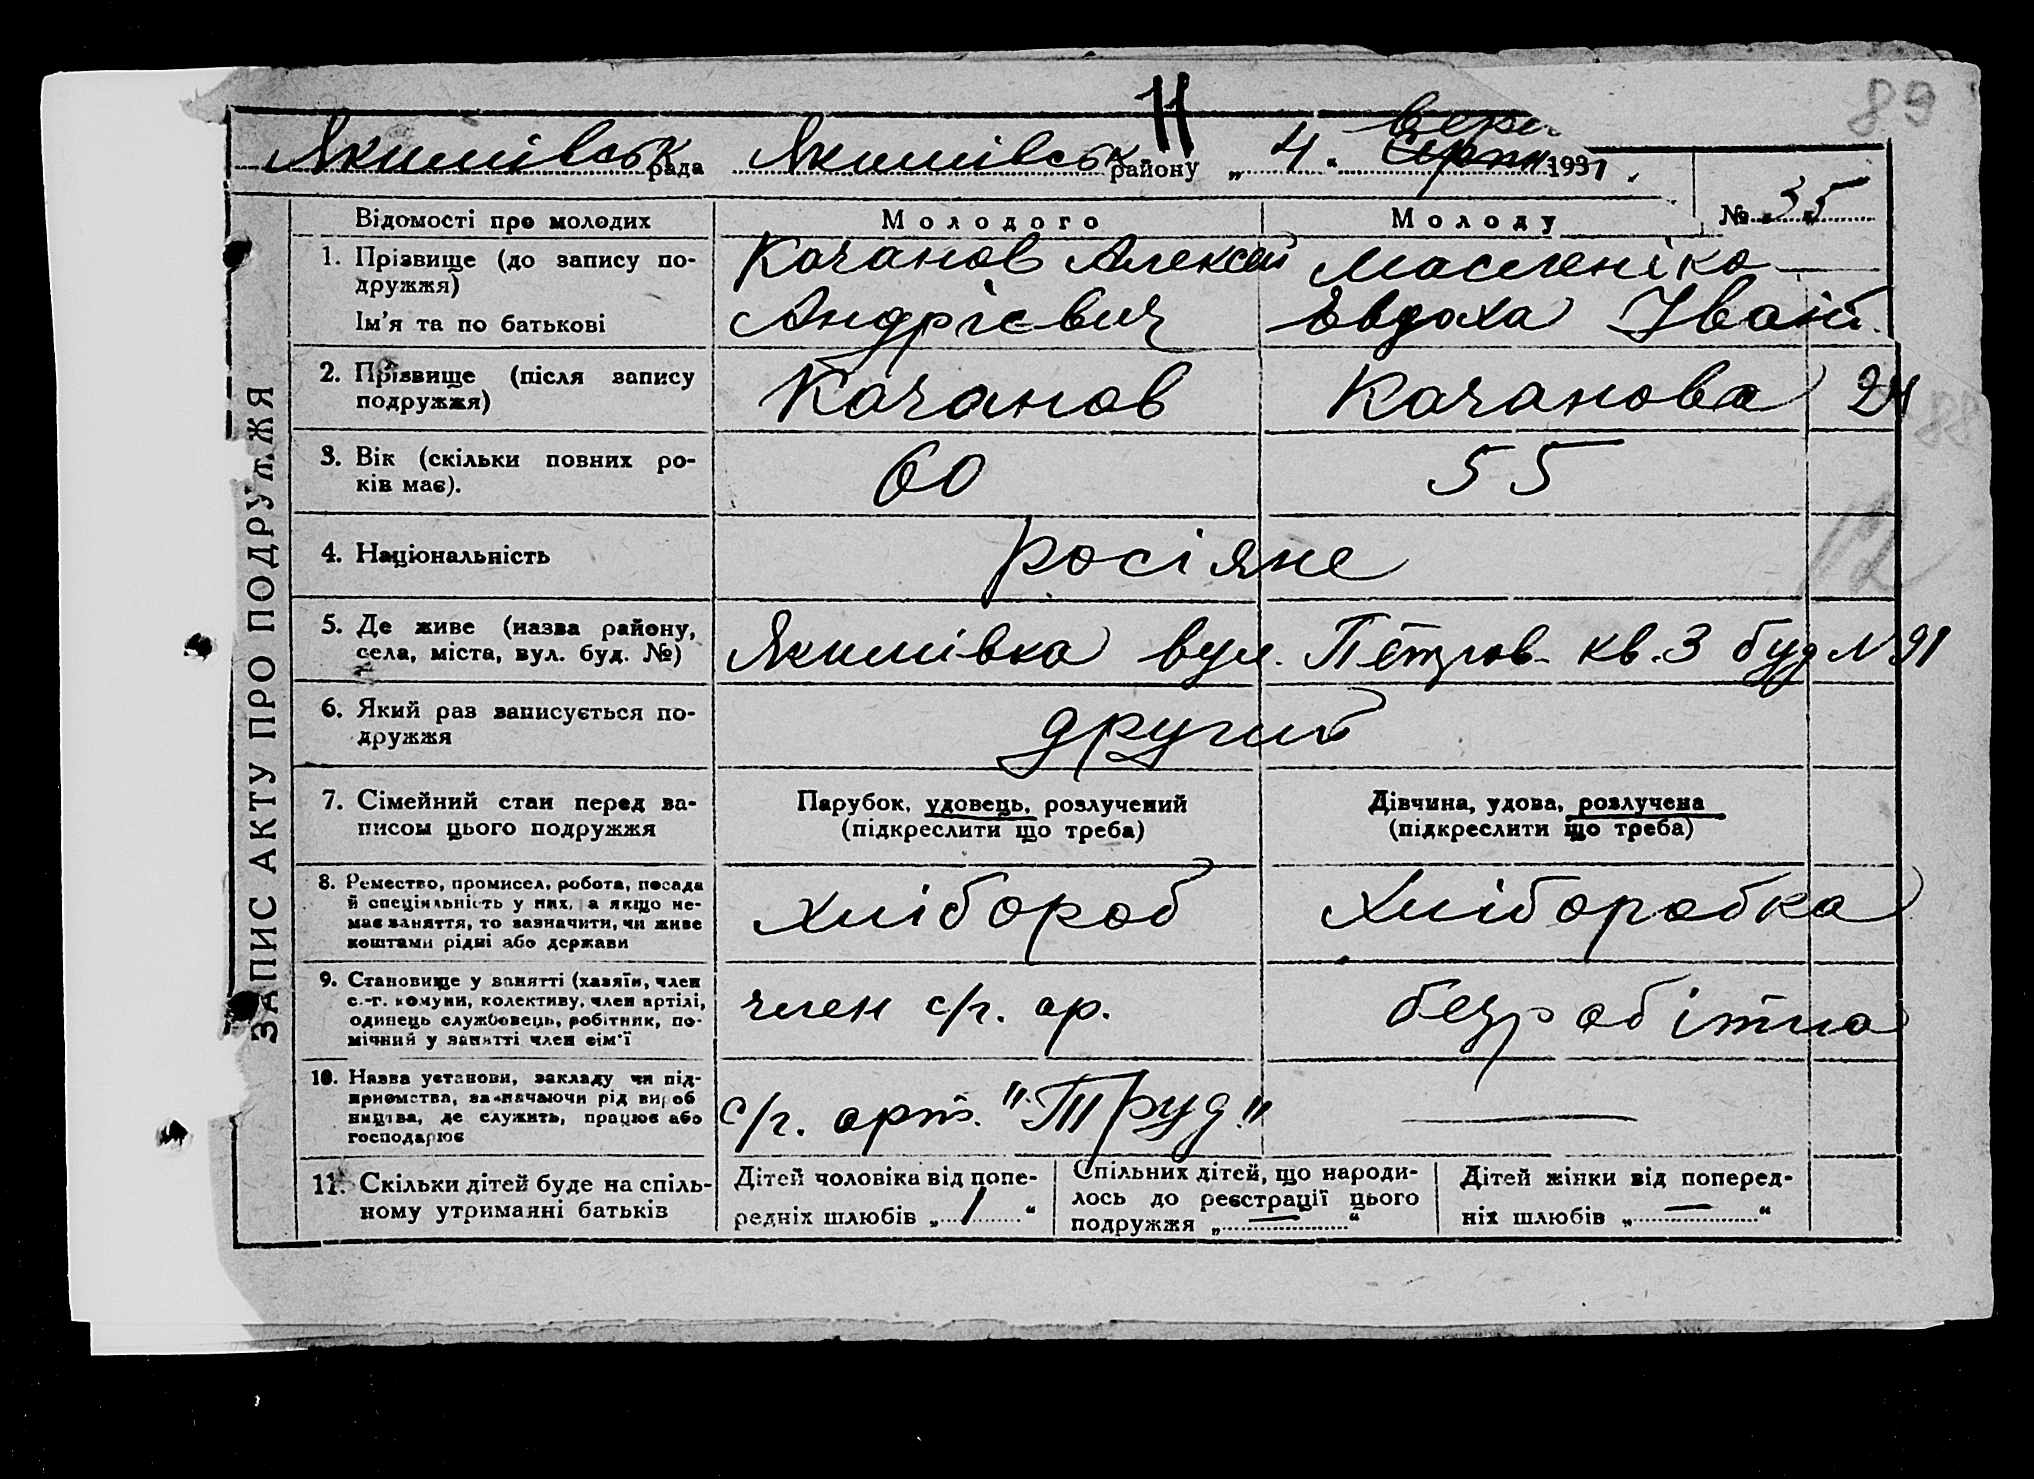 89
11
вере
Якимівськ рада Якимівськ району „ 4 " Серпн 1931.
№ 35
ЗАПИС АКТУ ПРО ПОДРУЖЖЯ
Відомості про молодих Молодого Молоду
1. Прізвище (до запису по-
дружжя)
Ім'я та по батькові
Качанов Алексей
Андрієвич
Масленіко
Евдоха Іван
2. Прізвище (після запису
подружжя)
Качанов Качанова 24
88
3. Вік (скільки повних ро-
ків має).
60 55
12
4. Національність
росіяне
5. Де живе (назва району,
села, міста, вул. буд. №)
Якимівка вул. Петров кв. 3 буд № 91
6. Який раз записується по-
дружжя
другий
7. Сімейний стан перед за-
писом цього подружжя
Парубок, удовець, розлучений
(підкреслити що треба)
Дівчина, удова, розлучена
(підкреслити що треба)
8. Ремество, промисел, робота, посада
й спеціяльність у них, а якщо не-
має заняття, то зазначити, чи живе
коштами рідні або держави
хлібороб Хліборобка
9. Становище у занятті (хазяїн, член
с.-г. комуни, колективу, член артілі,
одинець службовець, робітник, по-
мічний у занятті член сім'ї
член с/г. ар. безробітна
10. Назва установи, закладу чи під-
приємства, зазначаючи рід вироб
ництва, де служить, працює або
господарює
с/г. арт. "Труд"
11. Скільки дітей буде на спіль-
ному утриманні батьків
Дітей чоловіка від попе-
редніх шлюбів „ 1 "
Спільних дітей, що народи-
лось до реєстрації цього
подружжя „ — "
Дітей жінки від поперед-
ніх шлюбів „ — "